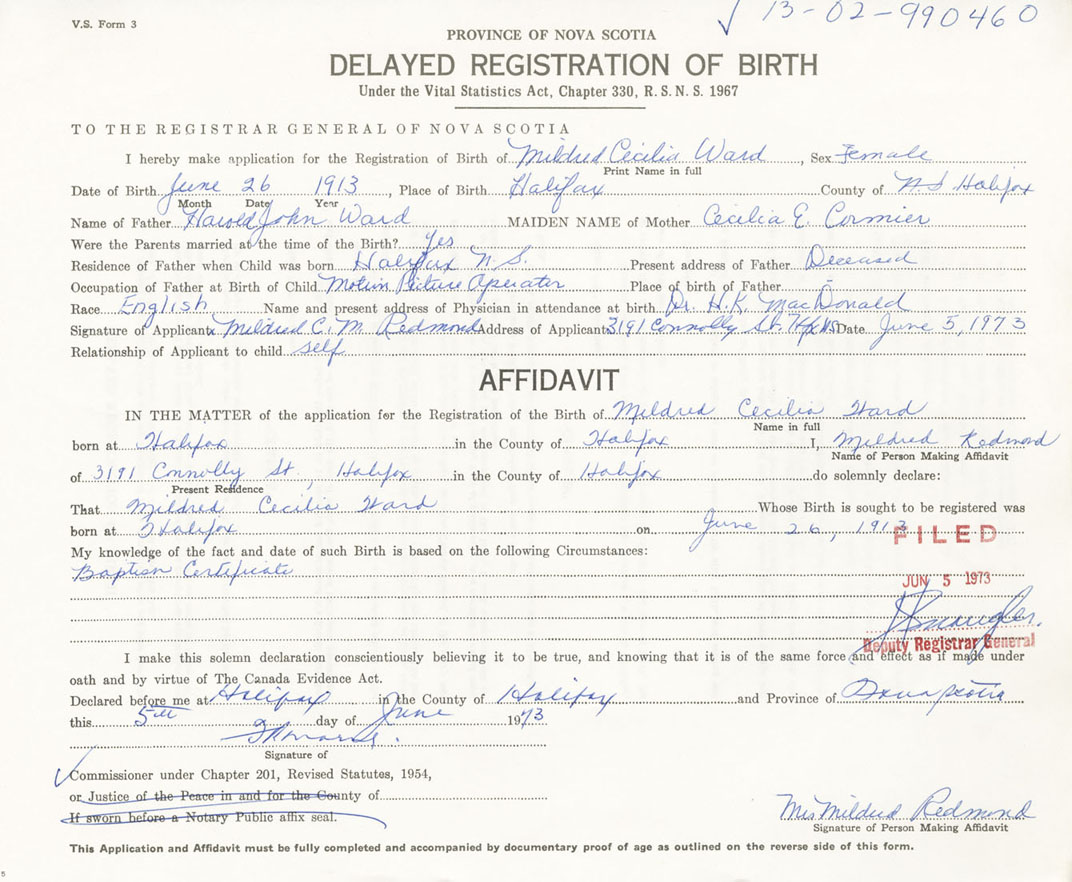 V.S. Form 3
13-02-990460
PROVINCE OF NOVA SCOTIA
DELAYED REGISTRATION OF BIRTH
Under the Vital Statistics Act, Chapter 330, R.S.N.S. 1967
TO THE REGISTRAR GENERAL OF NOVA SCOTIA
I hereby make application for the Registration of Birth of Mildred Cecilia Ward, Sex Female
Print Name in full
Date of Birth June 26 1913, Place of Birth Halifax County of N.S Halifax
Month Date Year
Name of Father Harold John Ward MAIDEN NAME of Mother Cecilia E. Cormier
Were the Parents married at the time of the Birth? Yes
Residence of Father when Child was born Halifax N.S. Present address of Father Deceased
Occupation of Father at Birth of Child Motion Picture Operator Place of birth of Father
Race English Name and present address of Physician in attendance at birth Dr. H.K. MacDonald
Signature of Applicant Mildred C. M. Redmond Address of Applicant 3191 Connolly St. Hfx NS Date June 5, 1973
Relationship of Applicant to child self
AFFIDAVIT
IN THE MATTER of the application for the Registration of the Birth of Mildred Cecilia Ward
Name in full
born at Halifax in the County of Halifax I, Mildred Redmond
Name of Person Making Affidavit
of 3191 Connolly St, Halifax in the County of Halifax do solemnly declare:
Present Residence
That Mildred Cecilia Ward Whose Birth is sought to be registered was
born at Halifax on June 26, 1913
FILED
My knowledge of the fact and date of such Birth is based on the following Circumstances:
Baptism Certificate
JUN 5 1973
Deputy Registrar General
I make this solemn declaration conscientiously believing it to be true, and knowing that it is of the same force and effect as if made under
oath and by virtue of The Canada Evidence Act.
Declared before me at Halifax in the County of Halifax and Province of Nova Scotia
this 5th day of June 1973
Signature of
Commissioner under Chapter 201, Revised Statutes, 1954,
or Justice of the Peace in and for the County of
If sworn before a Notary Public affix seal.
Mrs Mildred Redmond
Signature of Person Making Affidavit
This Application and Affidavit must be fully completed and accompanied by documentary proof of age as outlined on the reverse side of this form.
5